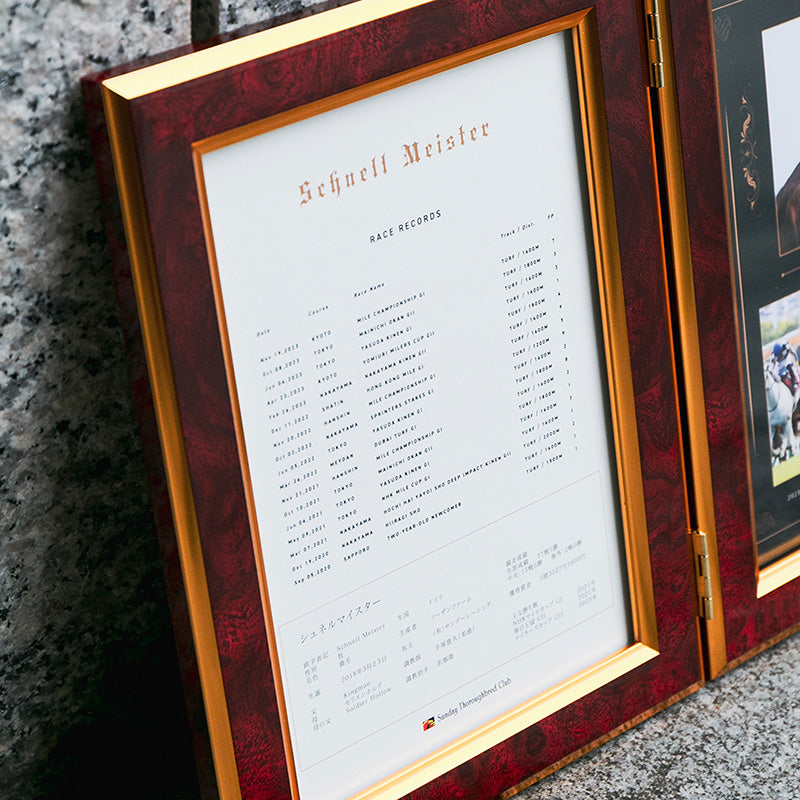 Schnell Meister
RACE RECORDS
Date Course Race Name Track / Dist. FP
Nov 19.2023 KYOTO MILE CHAMPIONSHIP GI TURF / 1600M 7
Oct 08.2023 TOKYO MAINICHI OKAN GII TURF / 1800M 3
Jun 04.2023 TOKYO YASUDA KINEN GI TURF / 1600M 3
Apr 23.2023 KYOTO YOMIURI MILERS CUP GII TURF / 1600M 1
Feb 26.2023 NAKAYAMA NAKAYAMA KINEN GII TURF / 1800M 4
Dec 11.2022 SHATIN HONG KONG MILE GI TURF / 1600M 9
Nov 20.2022 HANSHIN MILE CHAMPIONSHIP GI TURF / 1600M 5
Oct 02.2022 NAKAYAMA SPRINTERS STAKES GI TURF / 1200M 9
Jun 05.2022 TOKYO YASUDA KINEN GI TURF / 1600M 2
Mar 26.2022 MEYDAN DUBAI TURF GI TURF / 1800M 8
Nov 21.2021 HANSHIN MILE CHAMPIONSHIP GI TURF / 1600M 2
Oct 10.2021 TOKYO MAINICHI OKAN GII TURF / 1800M 1
Jun 06.2021 TOKYO YASUDA KINEN GI TURF / 1600M 3
May 09.2021 TOKYO NHK MILE CUP GI TURF / 1600M 1
Mar 07.2021 NAKAYAMA HOCHI HAI YAYOI SHO DEEP IMPACT KINEN GII TURF / 2000M 2
Dec 19.2020 NAKAYAMA HIIRAGI SHO TURF / 1600M 1
Sep 05.2020 SAPPORO TWO YEAR OLD NEWCOMER TURF / 1500M 1
シュネルマイスター
欧字表記 Schnell Meister 生国 ドイツ 競走成績 17戦5勝
性別 牡 生産者 ノーザンファーム 中央:15戦5勝 海外:2戦0勝
毛色 鹿毛 馬主 (有)サンデーレーシング 獲得賞金
生誕 2018年3月23日 調教師 手塚貴久(美浦) 主な勝ち鞍
父 Kingman 調教助手 NHKマイルカップ GI 2021年
母 セリエンホルデ 毎日王冠 GII 2021年
母の父 Soldier Hollow マイラーズカップ GII 2023年
Sunday Thoroughbred Club